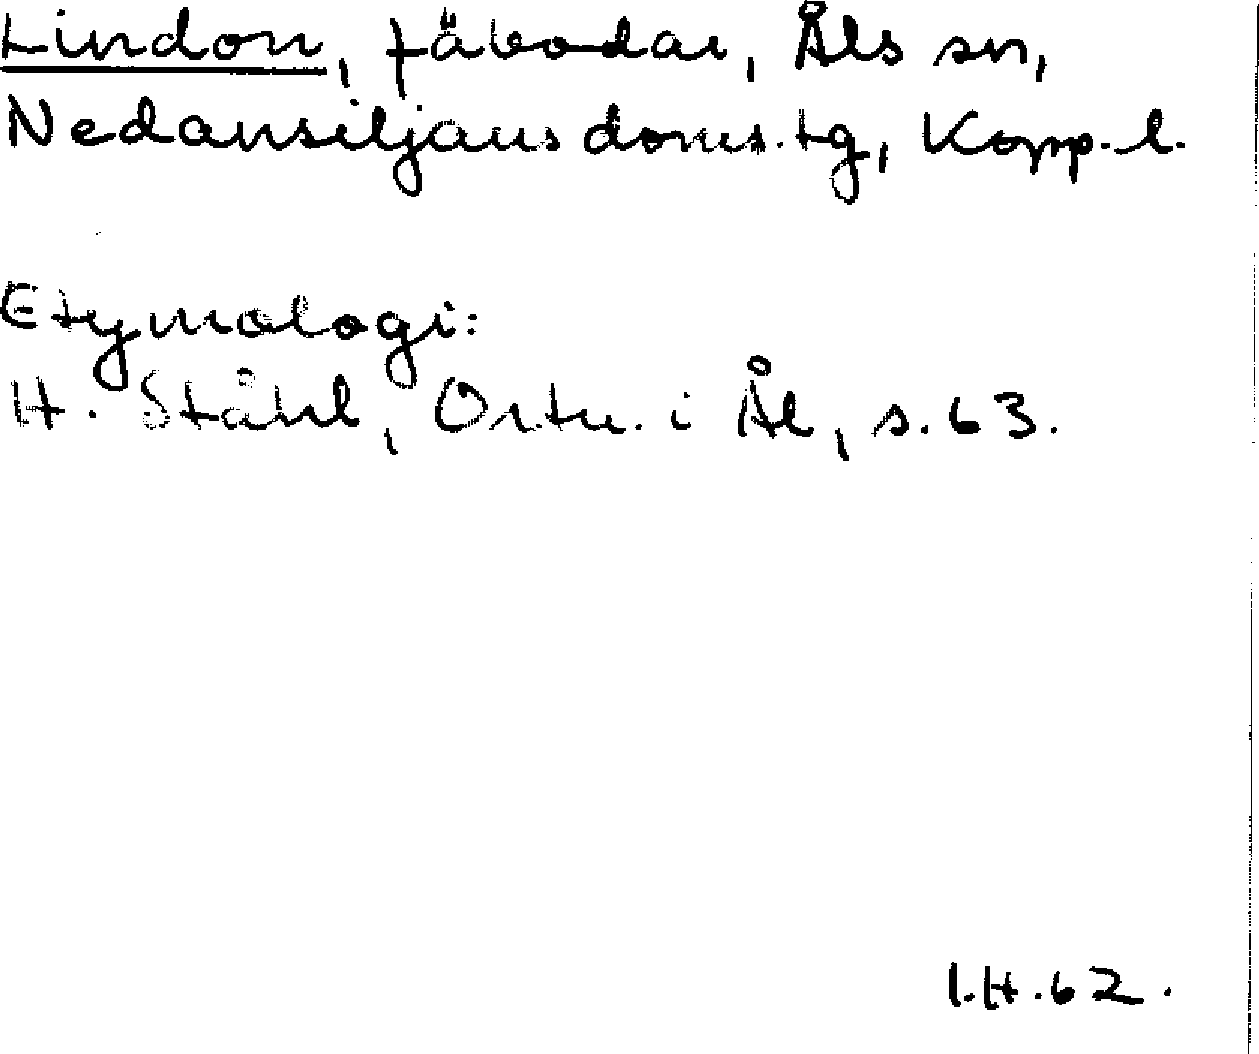 Lindon, fäbodar, Åls sn,
Nedansiljans doms.tg, Kopp. l.
Etymologi:
H. Ståhl, Ortn. i Ål, s. 63.
I.H.62.